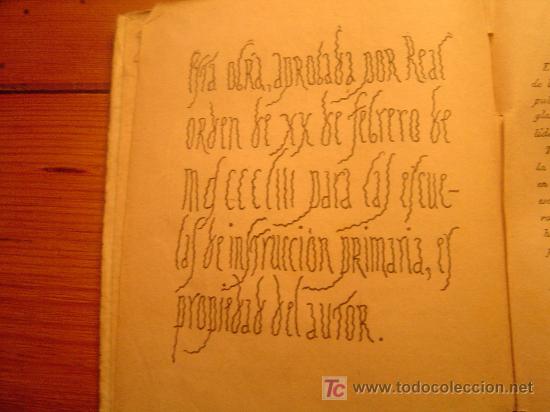 Esta obra, aprobada por Real
orden de XX de febrero de
MDCCCLIII para las escue-
las de instrucción primaria, es
propiedad del autor.
TC www.todocoleccion.net